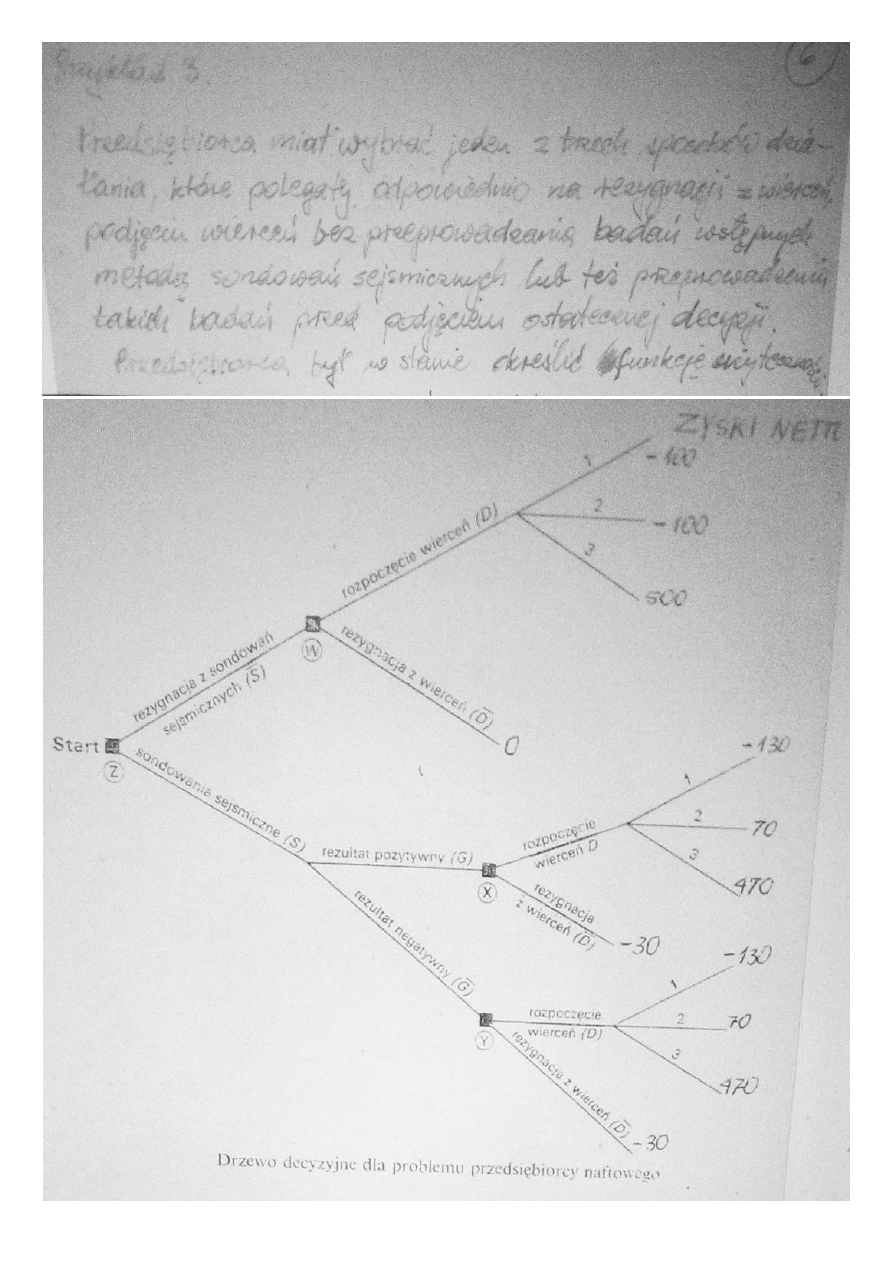 Przykład 3.
6
Przedsiębiorca miał wybrać jeden z trzech sposobów dzia-
łania, które polegały odpowiednio na rezygnacji z wierceń,
podjęciu wierceń bez przeprowadzania badań wstępnych
metodą sondowań sejsmicznych lub też przeprowadzeniu
takich badań przed podjęciem ostatecznej decyzji.
Przedsiębiorca był w stanie określić funkcję użyteczności.
ZYSKI NETTO
1
-100
rozpoczęcie wierceń (D)
2
-100
3
500
W
rezygnacja z sondowań
sejsmicznych (S̅)
rezygnacja z wierceń (D̅)
0
Start
Z
sondowania sejsmiczne (S)
rezultat pozytywny (G)
X
rozpoczęcie
wierceń D
1
-130
2
70
3
470
rezygnacja
z wierceń (D̅)
-30
rezultat negatywny (G̅)
Y
rozpoczęcie
wierceń (D)
1
-130
2
70
3
470
rezygnacja z wierceń (D̅)
-30
Drzewo decyzyjne dla problemu przedsiębiorcy naftowego